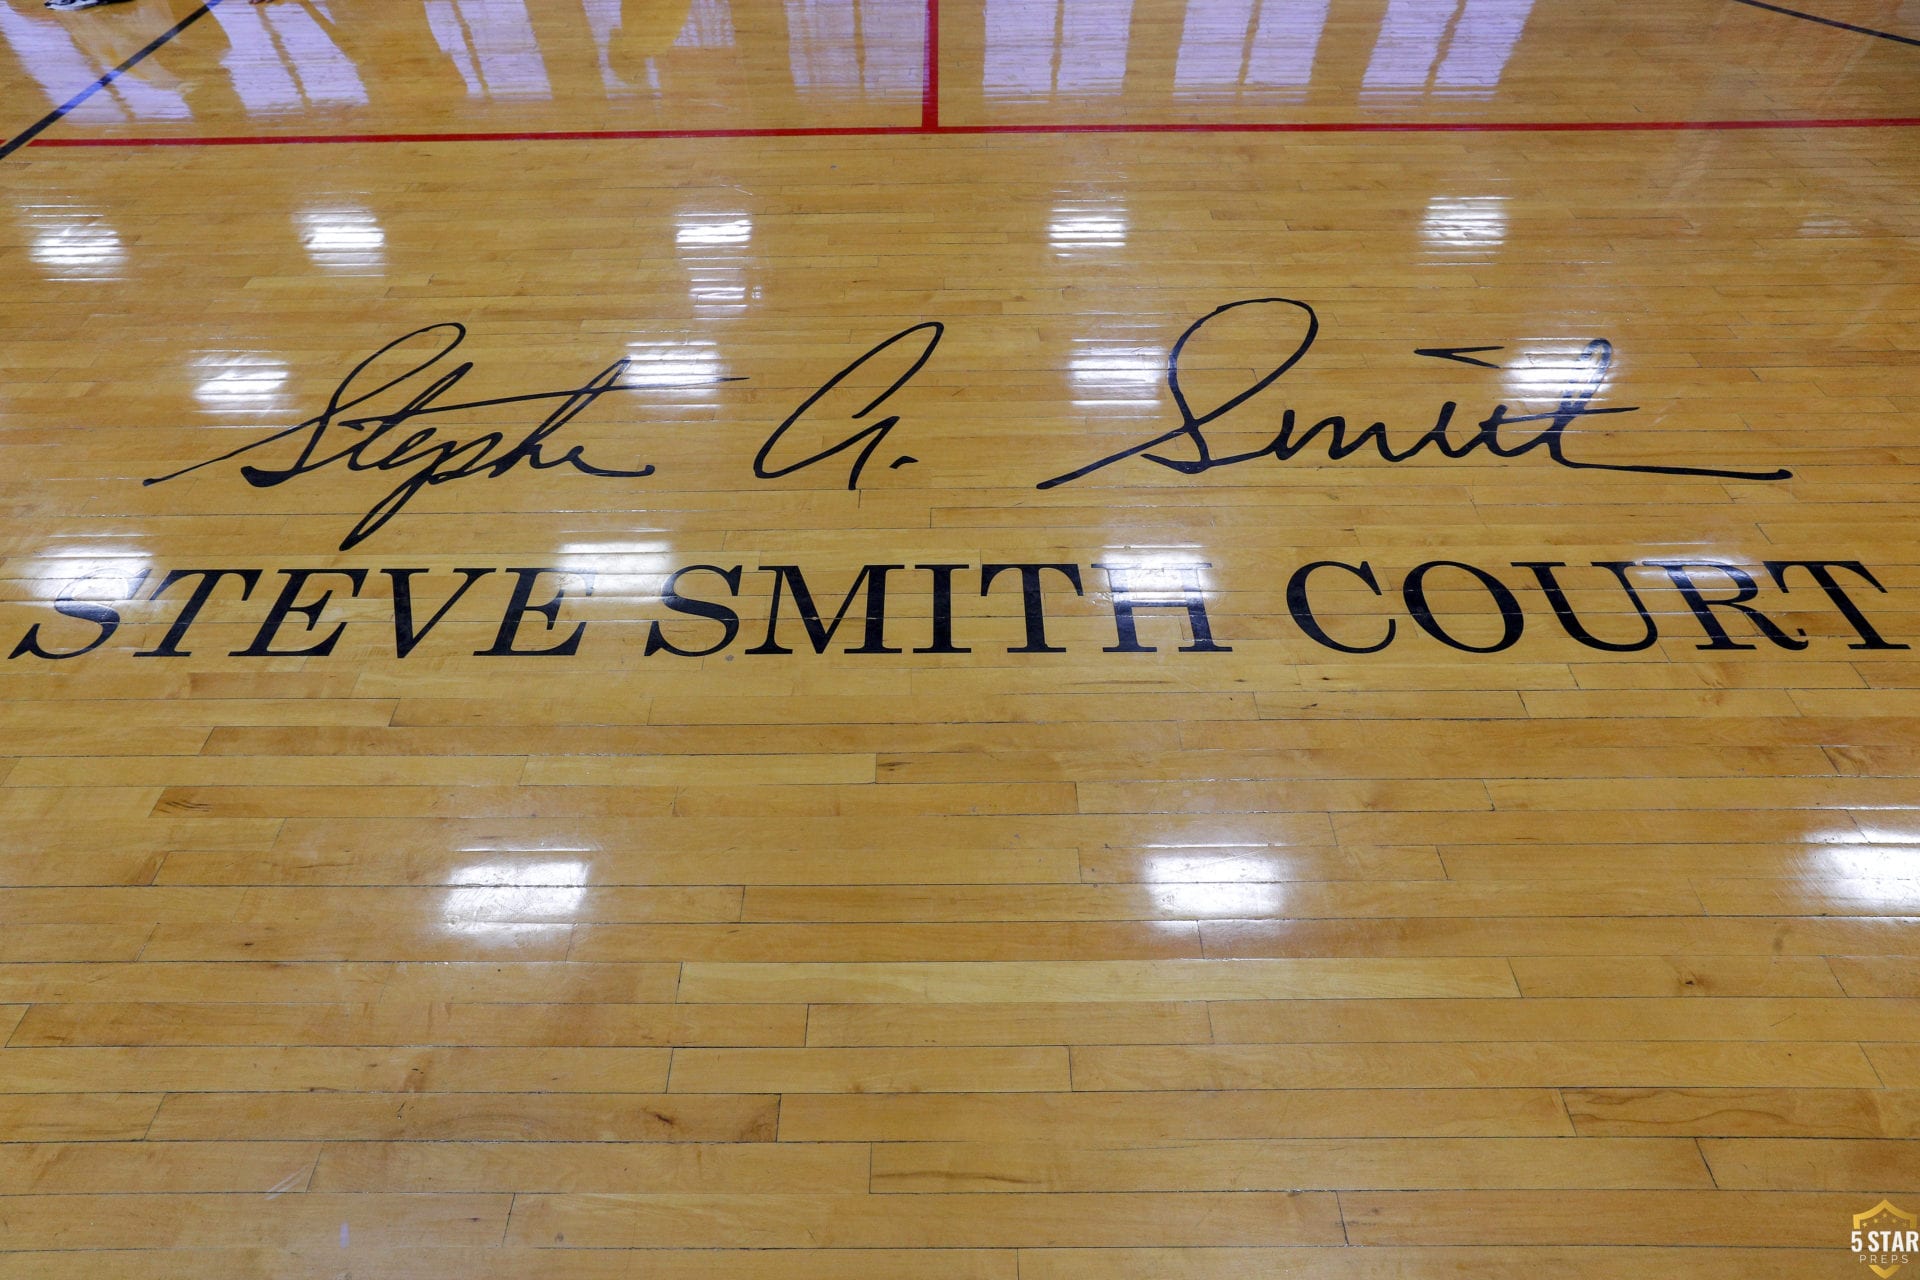 Stephen A. Smith
STEVE SMITH COURT
5 STAR
PREPS